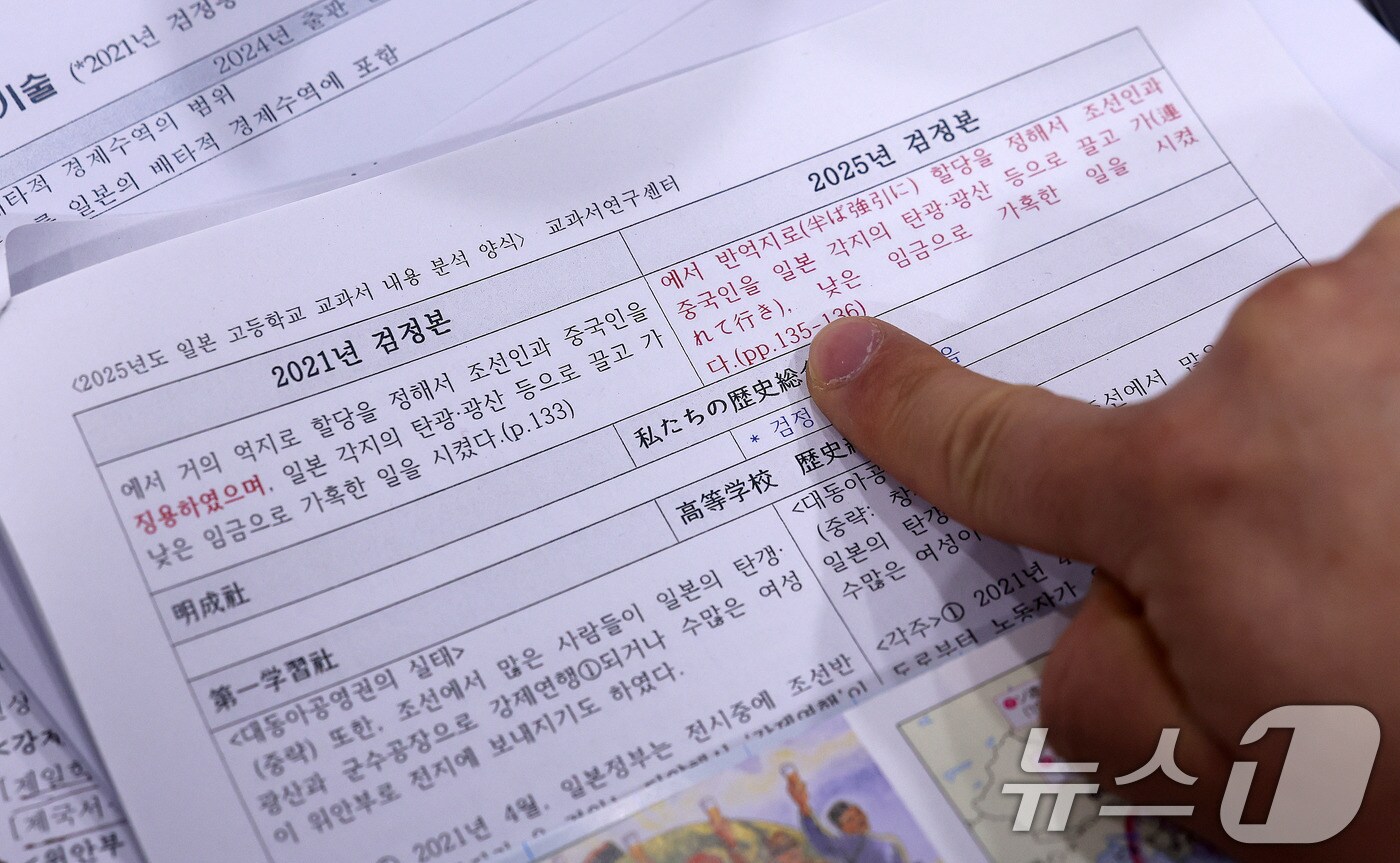 기술 (*2021년 검정
2024년 출판
경제수역의 범위
일본의 배타적 경제수역에 포함
<2025년도 일본 고등학교 교과서 내용 분석 양식> 교과서연구센터
2021년 검정본
에서 거의 억지로 할당을 정해서 조선인과 중국인을
징용하였으며, 일본 각지의 탄광·광산 등으로 끌고 가
낮은 임금으로 가혹한 일을 시켰다.(p.133)
2025년 검정본
에서 반역지로(半ば強引に) 할당을 정해서 조선인과
중국인을 일본 각지의 탄광·광산 등으로 끌고 가(連
れて行き), 낮은 임금으로 가혹한 일을 시켰
다.(pp.135-136)
明成社
私たちの歴史総
* 검정
第一学習社
高等学校 歴史
<대동아공영권의 실태>
(중략) 또한, 조선에서 많은 사람들이 일본의 탄갱·
광산과 군수공장으로 강제연행①되거나 수많은 여성
이 위안부로 전지에 보내지기도 하였다.
① 2021년 4월, 일본정부는 전시중에 조선반
<대동아공
(중략: 창
일본의 탄갱
수많은 여성이
조선에서 많
<각주>① 2021년 4
도로부터 노동자가
<강
[제국서
뉴스1